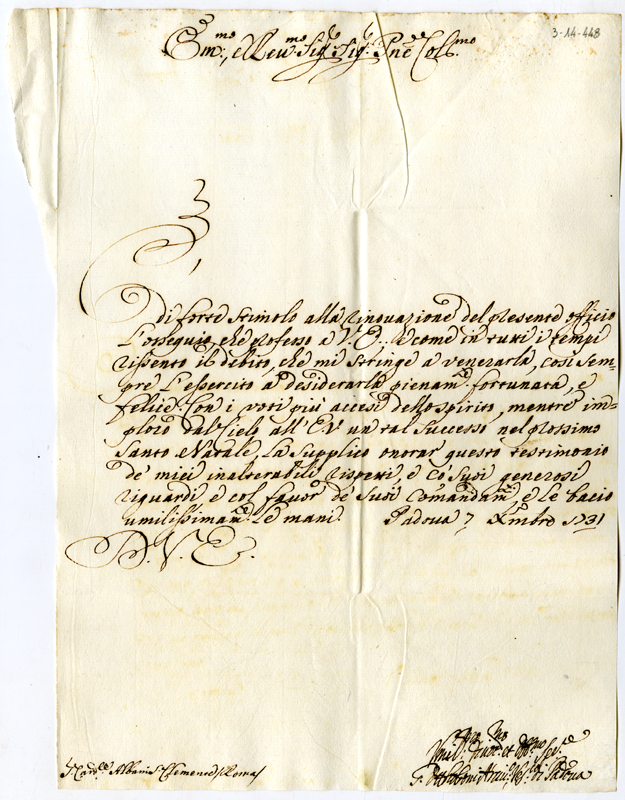 3-14-448
Em.mo, e Reu.mo Sig.re Sig.re Pne Col.mo
È di forte stimolo alla rinouazione del presente officio
L'ossequio, che professo a V.E., e come in tutti i tempi
rissento il debito, che mi stringe a venerarla, così sem=
pre L'essercito a desiderarla pienam.te fortunata, e
felice. Con i voti più accesi dello spirito, mentre im=
ploro dal Cielo all'E.V. un tal successo nel prossimo
Santo Natale, La supplico onorar questo testimonio
de' miei inalterabili rispetti, e co' suoi generosi
riguardi e col fauor de' suoi comandam.ti, e Le bacio
umilissimam.te Le mani. Padova 7 Xmbre 1731
D. V. E.
Umil. Deuot. et Obl.mo Ser.re
S. Card.le Albani S. Clemente Roma
F. Ottoboni Arciu. Vesc. di Padova